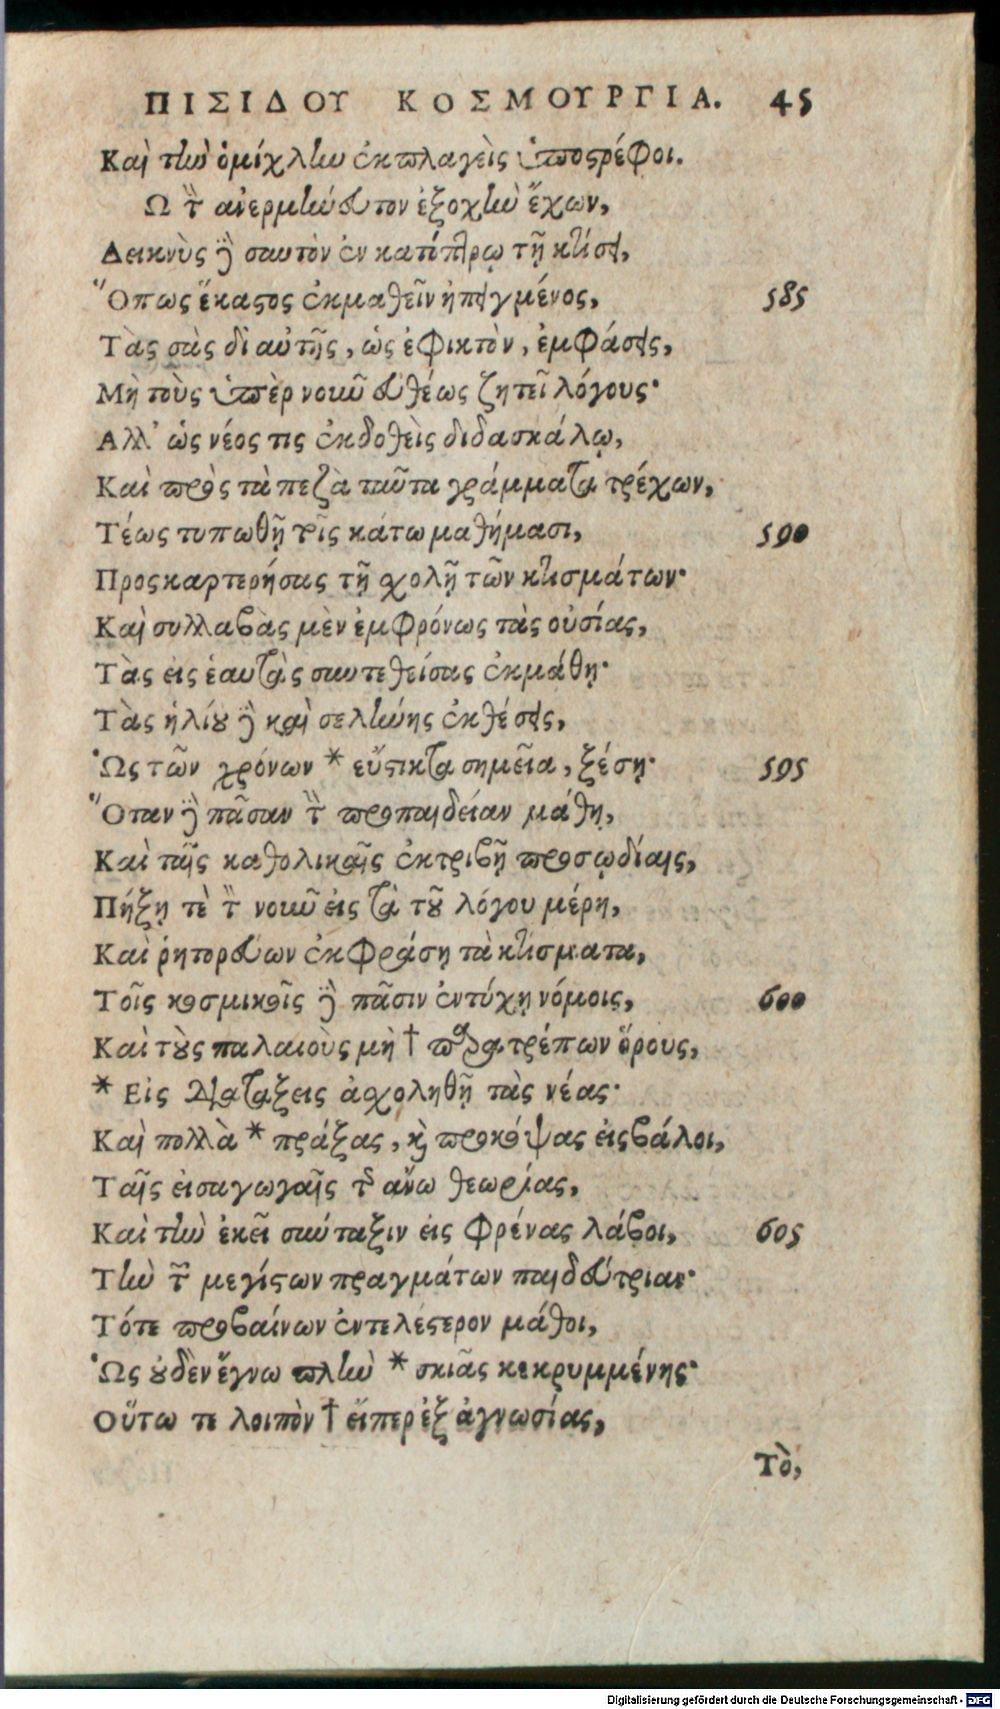 ΠΙΣΙΔΟΥ ΚΟΣΜΟΥΡΓΙΑ. 45
Καὶ τὴν ὁμίχλην ἐκπλαγεὶς ὑποστρέφοι.
Ω τὴν ἀνερμήνευτον ἐξοχὴν ἔχων,
Δεικνὺς δὲ σαυτὸν ἐν κατόπτρῳ τῇ κτίσει,
Ὅπως ἕκαστος ἐκμαθεῖν ἠπειγμένος, 585
Τὰς σὰς δι αὐτῆς, ὡς ἐφικτὸν, ἐμφάσεις,
Μὴ τοὺς ὑπὲρ νοῦν εὐθέως ζητεῖ λόγους·
Αλλ' ὡς νέος τις ἐκδοθεὶς διδασκάλῳ,
Καὶ πρὸς τὰ πεζὰ ταῦτα γράμματα τρέχων,
Τέως τυπωθῇ τοῖς κάτω μαθήμασι, 590
Προσκαρτερήσας τῇ χολῇ τῶν κτισμάτων·
Καὶ συλλαβὰς μὲν ἐμφρόνως τὰς οὐσίας,
Τὰς εἰς ἑαυτὰς συντεθείσας ἐκμάθῃ·
Τὰς ἡλίου δὲ καὶ σελήνης ἐκθέσεις,
Ὡς τῶν χρόνων * εὔστικτα σημεῖα, ξέσῃ· 595
Ὅταν δὲ πᾶσαν τὴν προπαιδείαν μάθῃ,
Καὶ ταῖς καθολικαῖς ἐκτριβῇ προσῳδίαις,
Πήξῃ τὲ τὸν νοῦν εἰς τὰ τοῦ λόγου μέρη,
Καὶ ῥητορεύων ἐκφράσῃ τὰ κτίσματα,
Τοῖς κοσμικοῖς δὲ πᾶσιν ἐντύχῃ νόμοις, 600
Καὶ τοὺς παλαιοὺς μὴ † παρατρέπων ὅρους,
* Εἰς διατάξεις ἀχοληθῇ τὰς νέας·
Καὶ πολλὰ * πράξας, καὶ προκόψας εἰσβάλοι,
Ταῖς εἰσαγωγαῖς τῆς ἄνω θεωρίας,
Καὶ τὴν ἐκεῖ σύνταξιν εἰς φρένας λάβοι, 605
Τὴν τῶν μεγίστων πραγμάτων παιδεύτριαν·
Τότε προβαίνων ἐντελέστερον μάθοι,
Ὡς οὐδὲν ἔγνω πλὴν * σκιᾶς κεκρυμμένης·
Οὕτω τε λοιπὸν † εἴπερ ἐξ ἀγνωσίας,
Τὸ,
Digitalisierung gefördert durch die Deutsche Forschungsgemeinschaft - DFG